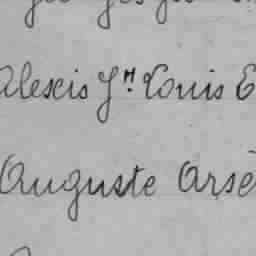 Alexis Jn. Louis E
Auguste Arsè